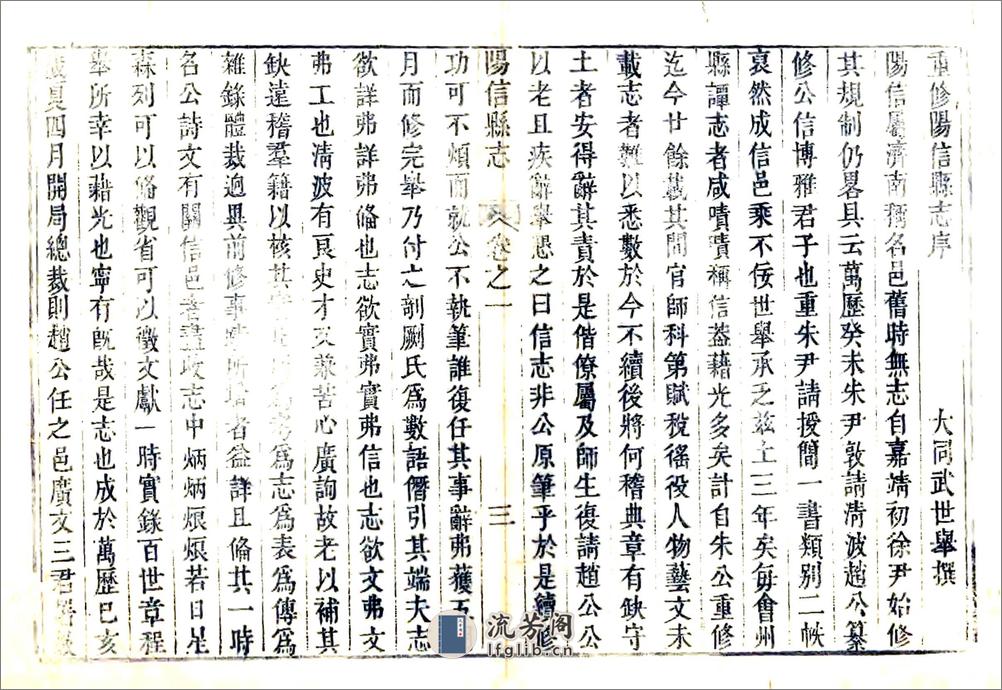 重修陽信縣志序
大同武世舉撰
陽信屬濟南稱名邑舊時無志自嘉靖初徐尹始修
其規制仍畧具云萬歷癸未朱尹敦請清波趙公纂
修公信博雅君子也重朱尹請授簡一書類別二帙
裒然成信邑乘不佞世舉承乏茲土三年矣每會州
縣譚志者咸嘖嘖稱信葢藉光多矣計自朱公重修
迄今廿餘載其間官師科第賦稅徭役人物藝文未
載志者難以悉數於今不續後將何稽典章有缺守
土者安得辭其責於是偕僚屬及師生復請趙公公
以老且疾辭舉思之曰信志非公原筆乎於是續修
陽信縣志
卷之一
三
功可不煩而就公不執筆誰復任其事辭弗獲五
月而修完舉乃付之剞劂氏爲數語僭引其端夫志
欲詳弗詳弗俻也志欲實弗實弗信也志欲文弗文
弗工也清波有良史才又兼苦心廣詢故老以補其
缺遠稽羣籍以核其 爲志爲表爲傳爲
雜錄體裁逈異前修事 所增者益詳且俻其一時
名公詩文有關信邑者盡收志中炳炳烺烺若日星
森列可以俻觀省可以徵文獻一時實錄百世章程
舉所幸以藉光也寧有旣哉是志也成於萬歷已亥
歲夏四月開局總裁則趙公任之邑廣文三君
流芳阁
lfglib.cn